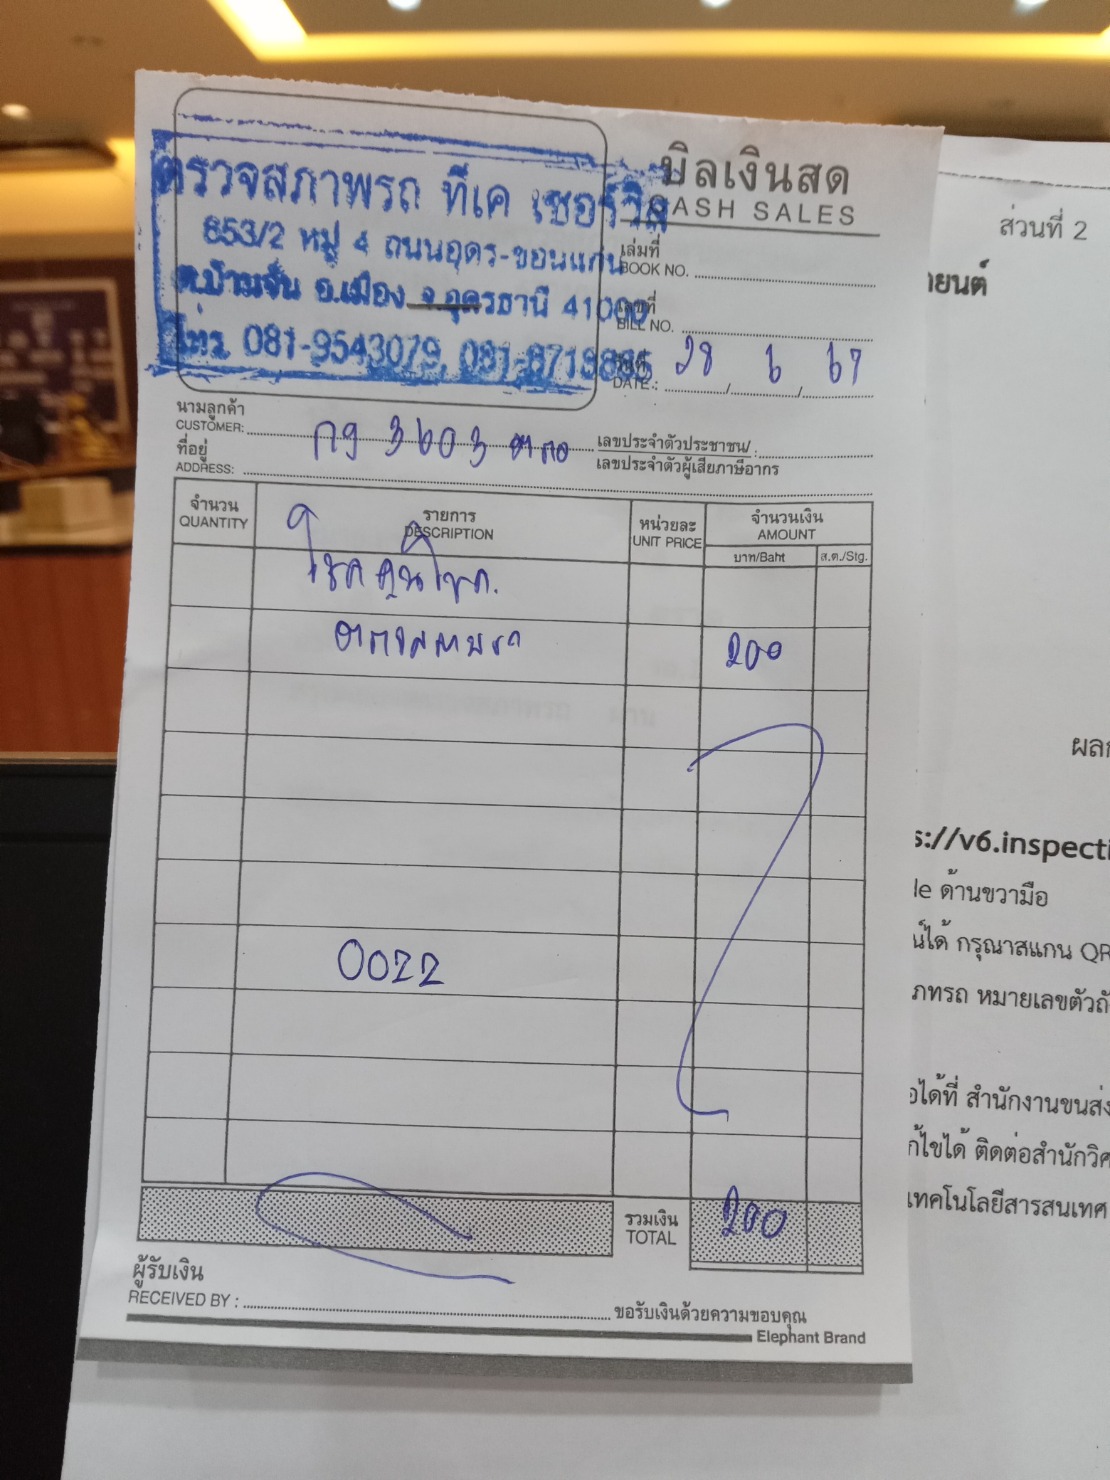 ตรวจสภาพรถ ทีเค เซอร์วิส
653/2 หมู่ 4 ถนนอุดร-ขอนแก่น
ต.บ้านจั่น อ.เมือง จ.อุดรธานี 41000
โทร. 081-9543079, 081-8719885
บิลเงินสด
CASH SALES
เล่มที่
BOOK NO.
เลขที่
BILL NO.
วันที่
DATE : 28 / 6 / 67
นามลูกค้า
CUSTOMER: กง 3603
ที่อยู่
ADDRESS:
เลขประจำตัวประชาชน/ :
เลขประจำตัวผู้เสียภาษีอากร
จำนวน
QUANTITY
รายการ
DESCRIPTION
หน่วยละ
UNIT PRICE
จำนวนเงิน
AMOUNT
บาท/Baht
ส.ต./Stg.
ตรวจสภาพรถ 200
0022
รวมเงิน
TOTAL
200
ผู้รับเงิน
RECEIVED BY :
ขอรับเงินด้วยความขอบคุณ
Elephant Brand
ส่วนที่ 2
ายนต์
ผลก
s://v6.inspecti
le ด้านขวามือ
น์ได้ กรุณาสแกน QR
ภทรถ หมายเลขตัวถั
อได้ที่ สำนักงานขนส่ง
ก้ไขได้ ติดต่อสำนักวิศ
เทคโนโลยีสารสนเทศ